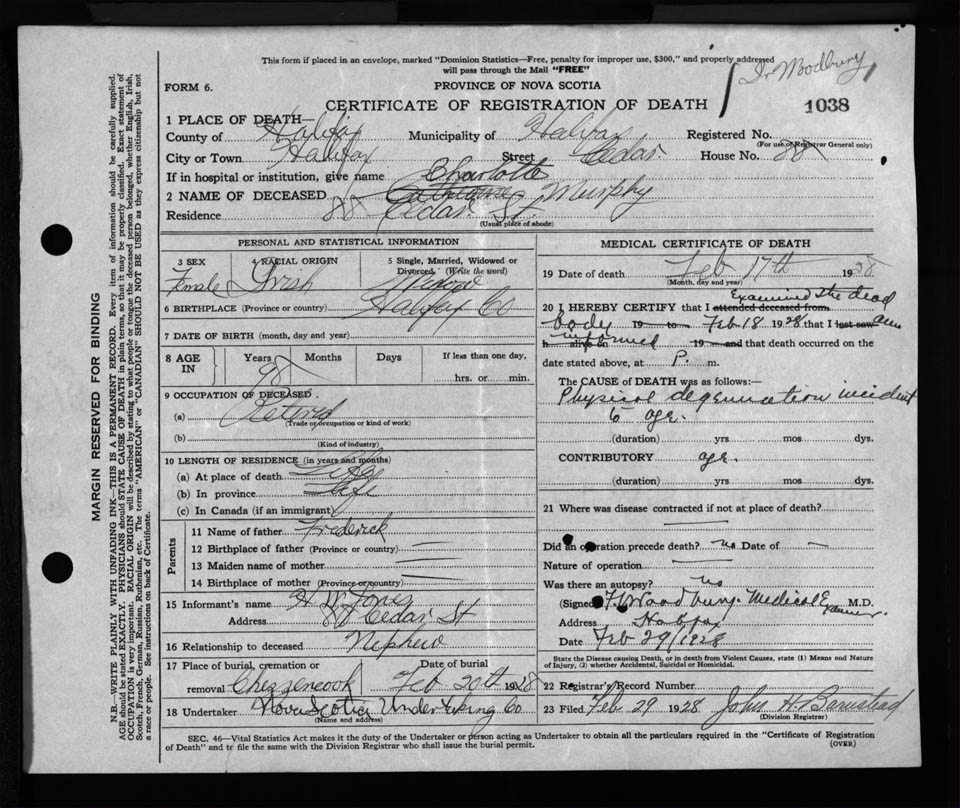 This form if placed in an envelope, marked "Dominion Statistics—Free, penalty for improper use, $300," and properly addressed
will pass through the Mail "FREE"
Dr Woodbury
FORM 6.
PROVINCE OF NOVA SCOTIA
CERTIFICATE OF REGISTRATION OF DEATH
1038
1 PLACE OF DEATH—
County of Halifax Municipality of Halifax Registered No.
(For use of Registrar General only)
City or Town Halifax Street Cedar. House No. 88
If in hospital or institution, give name
Charlotte
2 NAME OF DECEASED Catherine Murphy
Residence 88 Cedar St.
(Usual place of abode)
PERSONAL AND STATISTICAL INFORMATION
3 SEX 4 RACIAL ORIGIN 5 Single, Married, Widowed or Divorced. (Write the word)
Female Irish Widow
6 BIRTHPLACE (Province or country) Halifax Co
7 DATE OF BIRTH (month, day and year)
8 AGE IN Years Months Days If less than one day,
98 hrs. or min.
9 OCCUPATION OF DECEASED
(a) Retired
(Trade or occupation or kind of work)
(b)
(Kind of industry)
10 LENGTH OF RESIDENCE (in years and months)
(a) At place of death Life
(b) In province Life
(c) In Canada (if an immigrant)
Parents
11 Name of father Frederick
12 Birthplace of father (Province or country) —
13 Maiden name of mother —
14 Birthplace of mother (Province or country) —
15 Informant's name H W Jones
Address 88 Cedar St
16 Relationship to deceased Nephew
17 Place of burial, cremation or Date of burial
removal Chezzencook Feb 20th 1928
18 Undertaker Nova Scotia Undertaking Co
(Name and address)
MEDICAL CERTIFICATE OF DEATH
19 Date of death Feb 17th 1928
(Month, day and year)
Examined the dead
20 I HEREBY CERTIFY that I attended deceased from
body 19 to Feb 18 1928 that I last saw am
h alive on informed 19 and that death occurred on the
date stated above, at P. m.
The CAUSE OF DEATH was as follows:—
Physical degenuration incident
to age.
(duration) yrs mos dys.
CONTRIBUTORY age.
(duration) yrs mos dys.
21 Where was disease contracted if not at place of death?
Did an operation precede death? no Date of —
Nature of operation —
Was there an autopsy? no
(Signed) F. Woodbury. Medical Examiner. M.D.
Address Halifax
Date Feb 29/1928
State the Disease causing Death, or in death from Violent Causes, state (1) Means and Nature
of Injury, (2) whether Accidental, Suicidal or Homicidal.
22 Registrar's Record Number
23 Filed Feb. 29 1928 John H. Barnstead
(Division Registrar)
SEC. 46—Vital Statistics Act makes it the duty of the Undertaker or person acting as Undertaker to obtain all the particulars required in the "Certificate of Registration
of Death" and to file the same with the Division Registrar who shall issue the burial permit. (OVER)
MARGIN RESERVED FOR BINDING
N.B.—WRITE PLAINLY WITH UNFADING INK—THIS IS A PERMANENT RECORD. Every item of information should be carefully supplied.
AGE should be stated EXACTLY. PHYSICIANS should STATE CAUSE OF DEATH in plain terms, so that it may be properly classified. Exact statement of
OCCUPATION is very important. RACIAL ORIGIN will be described by stating to what people or tongue the deceased person belonged, whether English, Irish,
Scotch, French, German, Russian, Ruthenian, etc. The terms "AMERICAN" or "CANADIAN" SHOULD NOT BE USED as they express citizenship but not
a race or people. See instructions on back of Certificate.